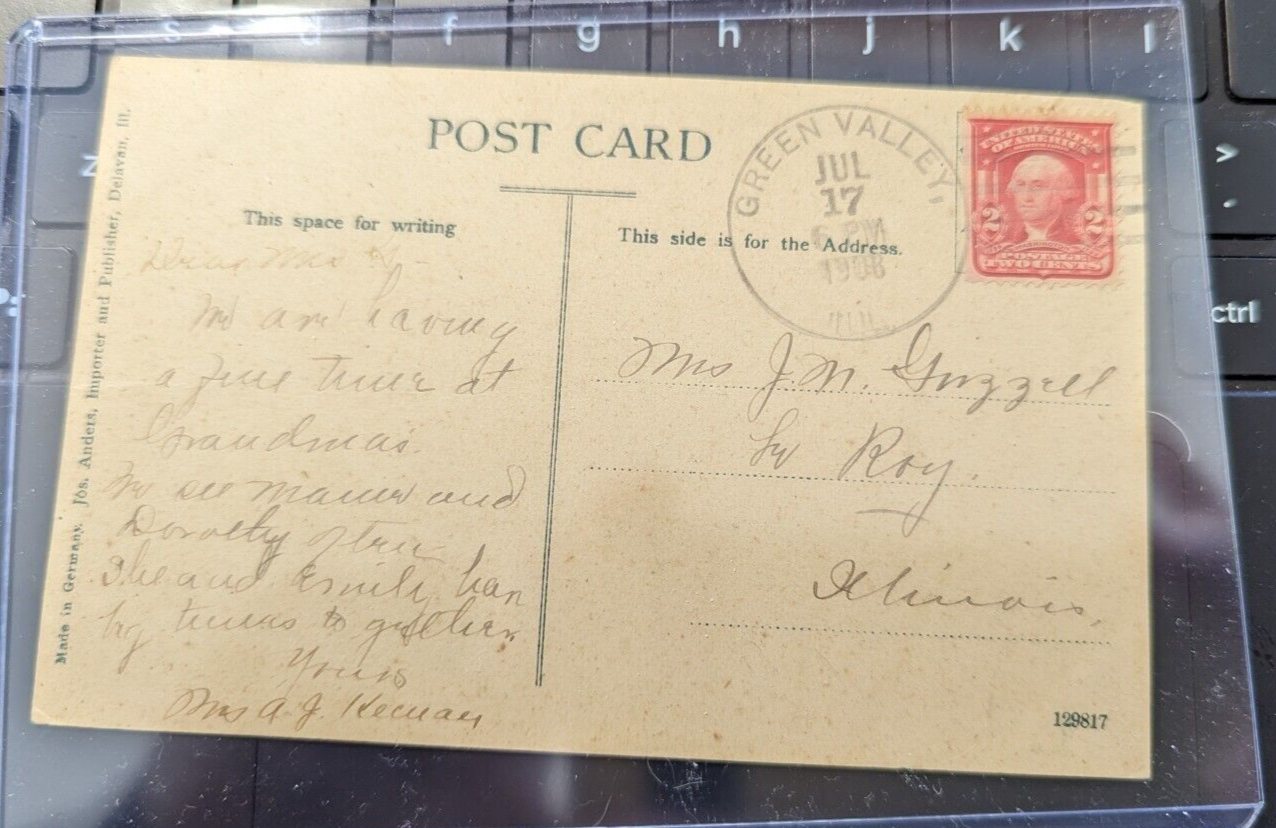 s d f g h j k l
Z
>
.
:
;
ctrl
POST CARD
This space for writing
This side is for the Address.
GREEN VALLEY,
JUL
17
6 PM
1908
ILL.
UNITED STATES
OF AMERICA
2 2
POSTAGE
TWO CENTS
Made in Germany. Jos. Anders, Importer and Publisher, Delavan, Ill.
Dear Mrs
We are having
a fine time at
Grandmas.
We see mamie and
Dorothy often
She and Emily han
big times to gether.
Yours
Mrs A. J. Keenan
Mrs J. M. Grizzell
Le Roy.
Illinois,
129817